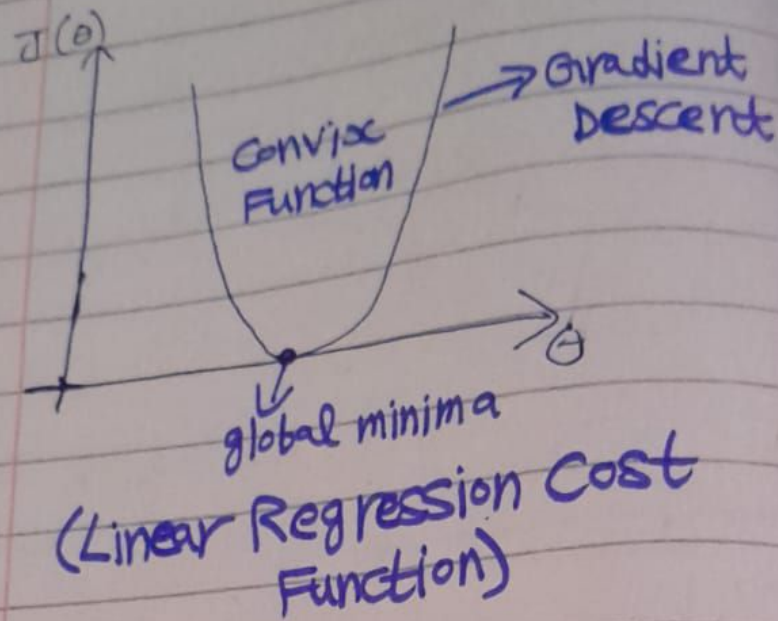 J(θ)
Convix
Function
Gradient
Descent
θ
global minima
(Linear Regression Cost
Function)